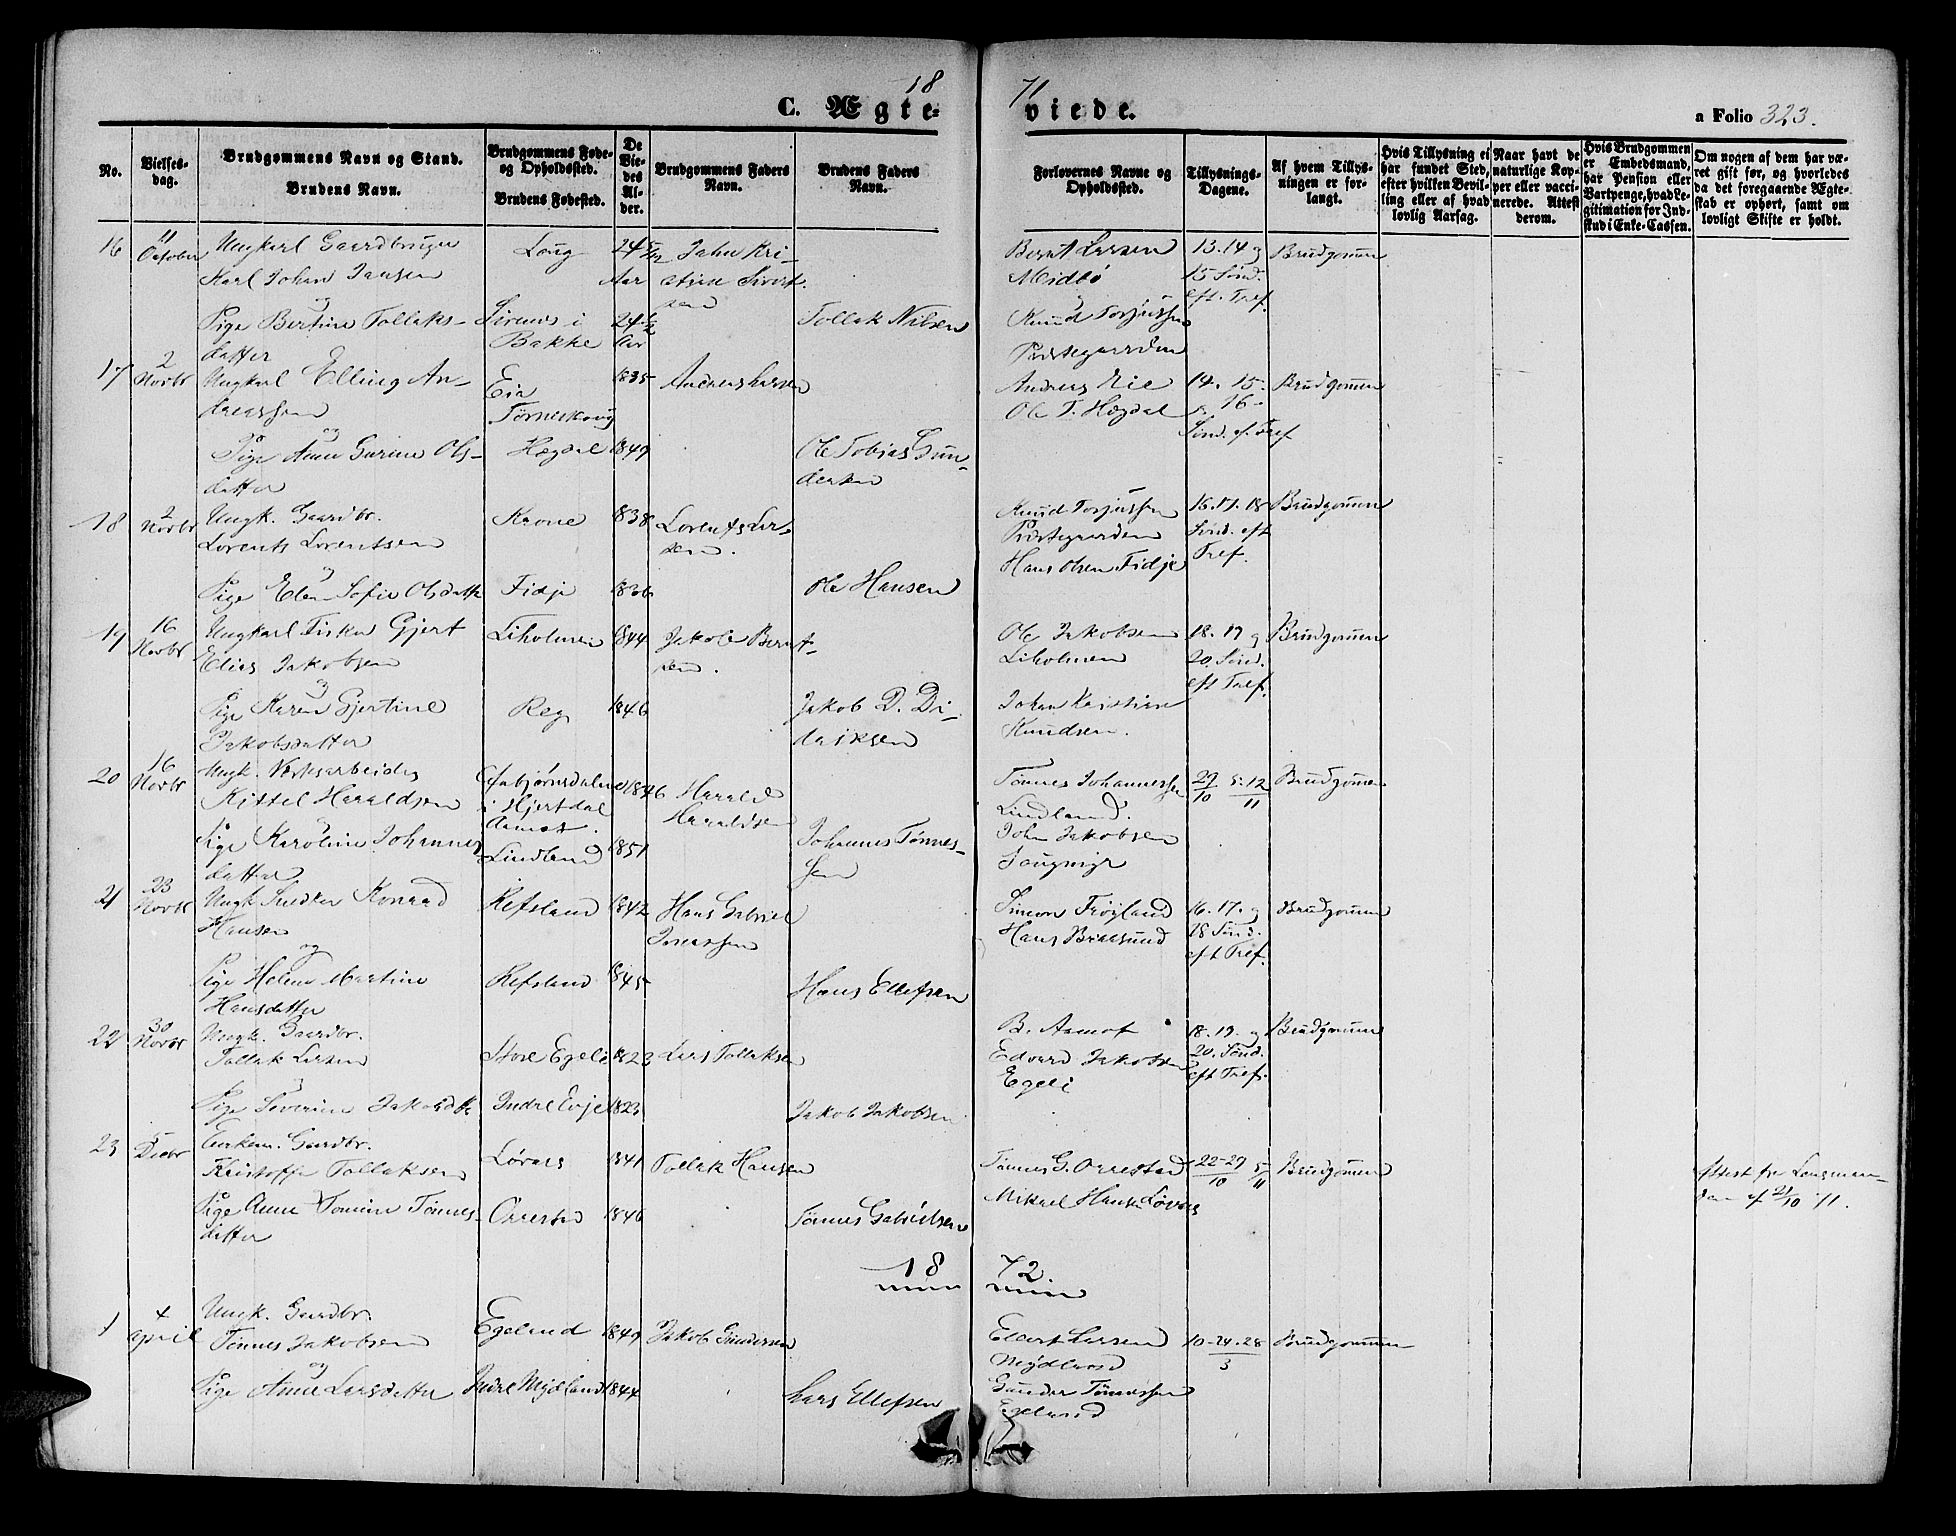 18 71
C. Ægteviede.
a Folio 323.
No.
Vielsesdag.
Brudgommens Navn og Stand.
Brudens Navn.
Brudgommens Føde- og Opholdssted.
Brudens Fødested.
De Viedes Alder.
Brudgommens Faders Navn.
Brudens Faders Navn.
Forlovernes Navne og Opholdssted.
Tillysnings-Dagene.
Af hvem Tillysningen er forlangt.
Hvis Tillysning ei har fundet Sted, efter hvilken Bevilling eller af hvad lovlig Aarsag.
Naar havt de naturlige Kopper eller vaccinerede. Attest derom.
Hvis Brudgommen er Embedsmand, har Pension eller Vartpenge, hvad Legitimation for Indskud i Enke-Cassen.
Om nogen af dem har været gift før, og hvorledes da det foregaaende Ægteskab er ophørt, samt om lovligt Skifte er holdt.
16 11 October Ungkarl Gaardbruger Karl Johan Jansen Aar Jahn Kristian Sivertsen
og
Pige Bertine Tollaksdatter Sirenes i Bakke 24 1/2 Aar Tollak Nilsen
Bernt Larsen Meidbø og Knud Torjussen Præstegaarden 13. 14 og 15 Sønd. eft. Tref. Brudgommen
17 2 Novbr Ungkarl Elling Andreassen Eia 1835 Andreas Larsen
og
Pige Anne Gurine Olsdatter Hægdal 1849 Ole Tobias Gundersen
Andreas Eie Ole T. Hægdal 14. 15. 16 Sønd. ef. Tref Brudgommen
18 2 Novbr Ungk. Gaardbr. Lorents Lorentsen Krone 1838 Lorents Larsen.
og
Pige Elen Sofie Olsdatter Fidje Ole Hansen
Knud Torjussen Præstegaarden Hans Olsen Fidje 16. 17. 18 Sønd. eft Tref. Brudgommen
19 16 Novbr Ungkarl Fisker Gjert Elias Jakobsen Liholmen 1844 Jakob Berntsen.
og
Pige Karen Gjertine Jakobsdatter Reg 1846 Jakob D. Didriksen
Ole Jakobsen Liholmen Johan Kristian Knudsen. 18. 19 og 20. Sønd. eft Tref. Brudgommen
20 16 Novbr Ungk. Værksarbeider Kittel Haraldsen i Hjertdal 1846 Harald Haraldsen
Pige Karoline Johannesdatter Lindland 1851 Johannes Tønnessen
Tønnes Johannessen Lindland. John Jakobsen 29/10 5. 12/11 Brudgommen
21 23 Novbr Ungk Snedker Konrad Hansen Refsland 1842 Hans Gabriel Jonassen
og
Pige Helene Martine Hansdatter Refsland 1845 Hans Ellefsen
Simon Frøiland Hans Birkesund 16. 17. og 18 Sønd. eft Tref. Brudgommen
22 30 Novbr Ungk. Gaardbr. Tollak Larsen Store Egeli 1823 Lars Tollaksen
og
Pige Severine Jakobsdtr Indre Evje 1823 Jakob Jakobsen
B. Aamot Edvard Jakobsen Egeli 18. 19. og 20. Sønd. eft Tref. Brudgommen
23 5 Decbr Enkem. Gaardbr. Kristoffer Tollaksen Løvaas 1841 Tollak Hansen
Pige Anne Tomine Tønnesdatter Orrestad 1846 Tønnes Gabrielsen
Tønnes G. Orrestad Mikael Hansen Løvaas 22-29/10 5/11 Brudgommen Attest fra Lensmanden af 21/10 71.
18 72
1 4 April Ungk. Gaardbr. Tønnes Jakobsen Egeland 1849 Jakob Gundersen
og
Pige Anne Larsdatter Indre Mydland 1844 Lars Ellefsen
Ellert Larsen Mydland Gunder Tønnessen Egeland 10-24.28/3 Brudgommen